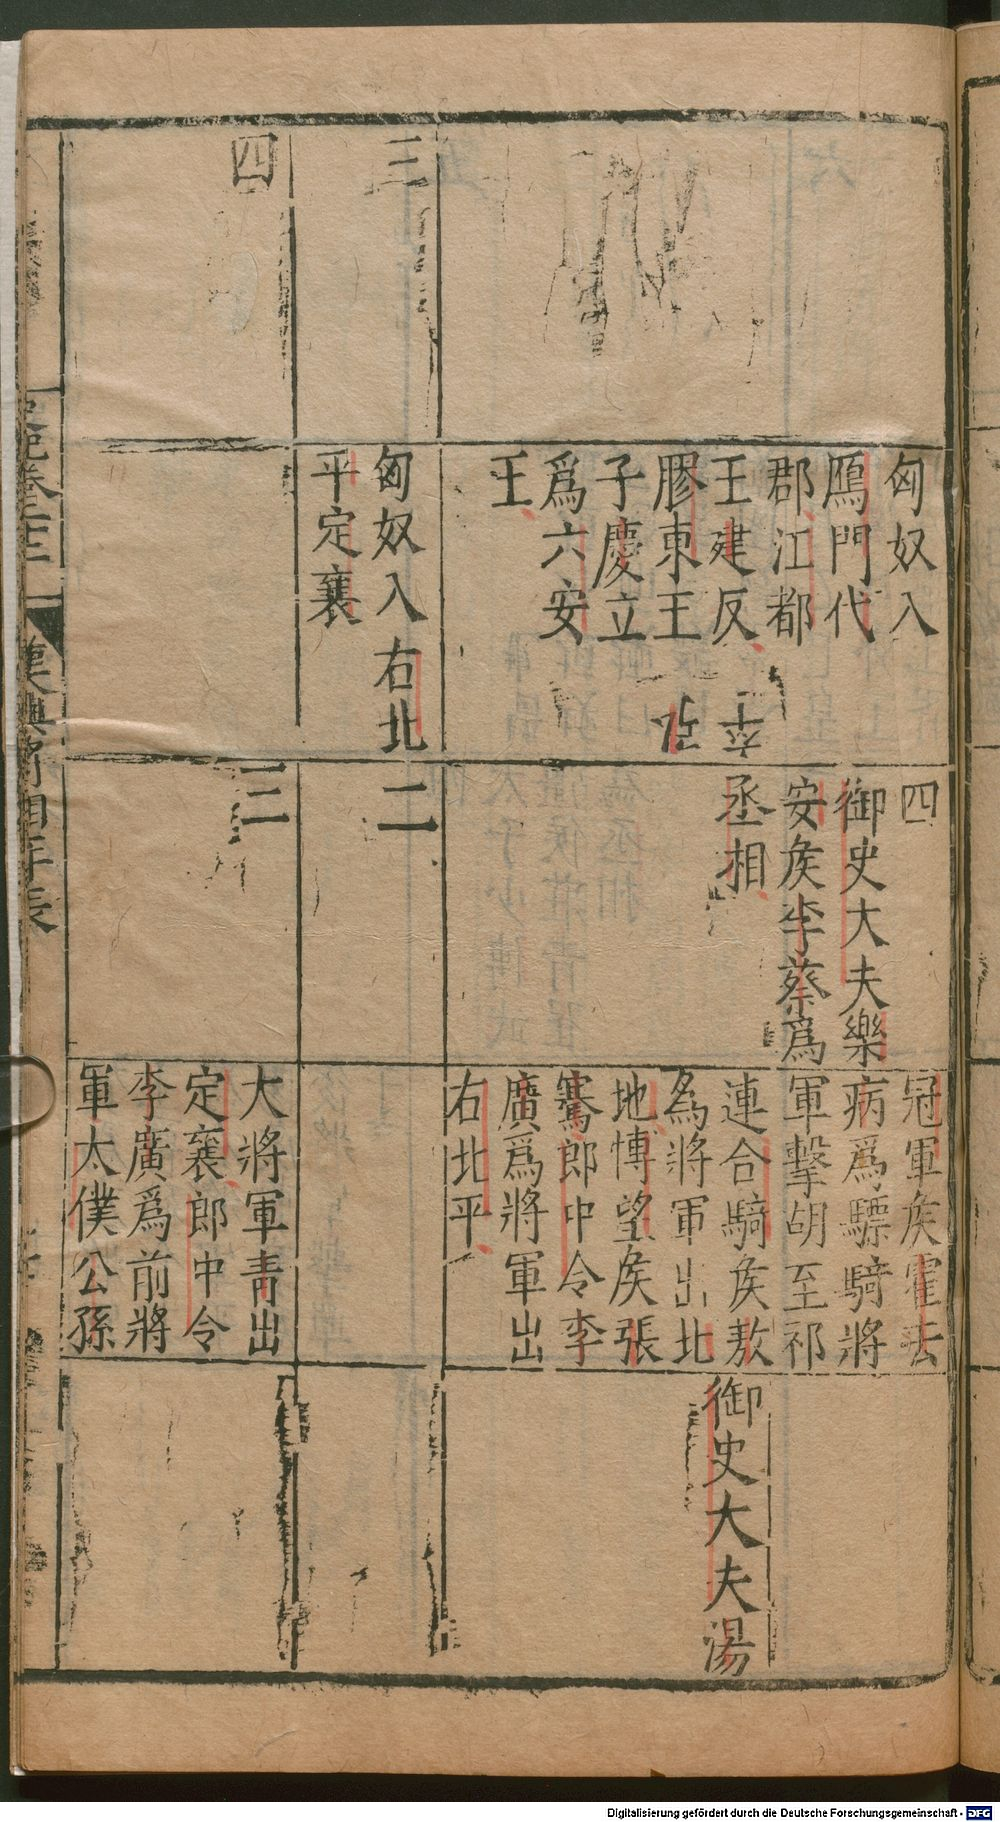 匈奴入
鴈門代
郡江都
王建反
膠東王
子慶立
爲六安
王
弘
卒
四
御史大夫樂
安矦李蔡爲
丞相
冠軍矦霍去
病爲驃騎將
軍擊胡至祁
連合騎矦敖
為將軍出北
地博望矦張
騫郎中令李
廣爲將軍出
右北平
御史大夫湯
三
匈奴入右北
平定襄
二
四
三
大將軍青出
定襄郎中令
李廣爲前將
軍太僕公孫
漢興將相年表
Digitalisierung gefördert durch die Deutsche Forschungsgemeinschaft - DFG